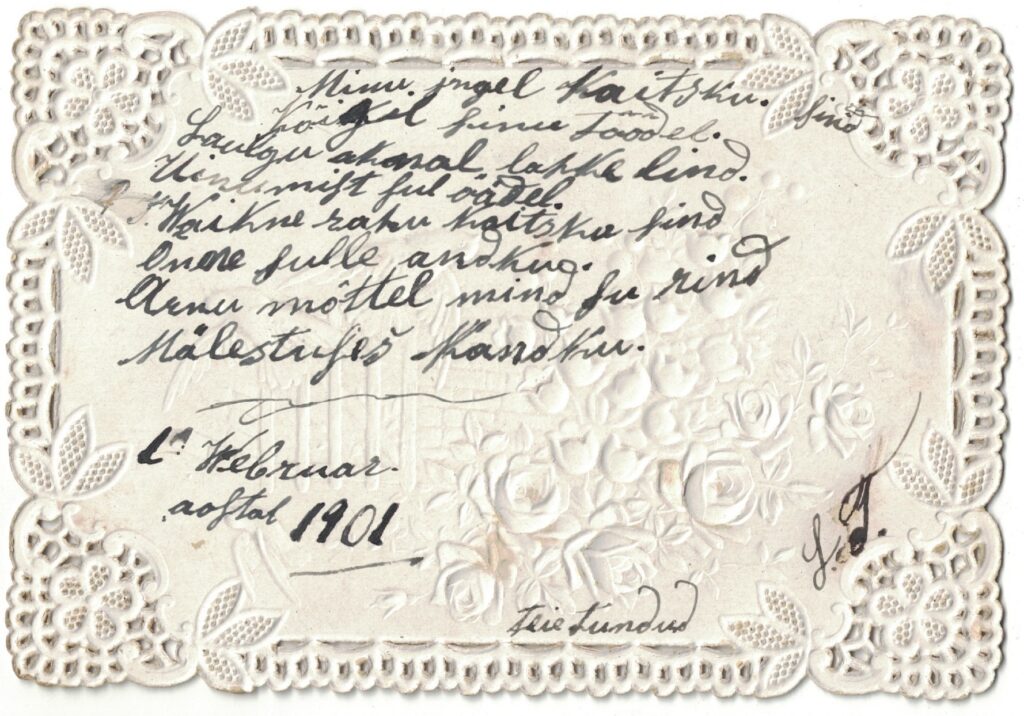 Minu ingel kaitsku. sind
Kõikil sinu töödel.
Laulgu aknal lahke lind.
Uinumist sul öödel.
Waikne rahu kaitsku sind
Õnne sulle andkug.
Armu mõttel mind su rind
Mälestuses kandku.
1. Webruar.
aastal 1901
teie tundud